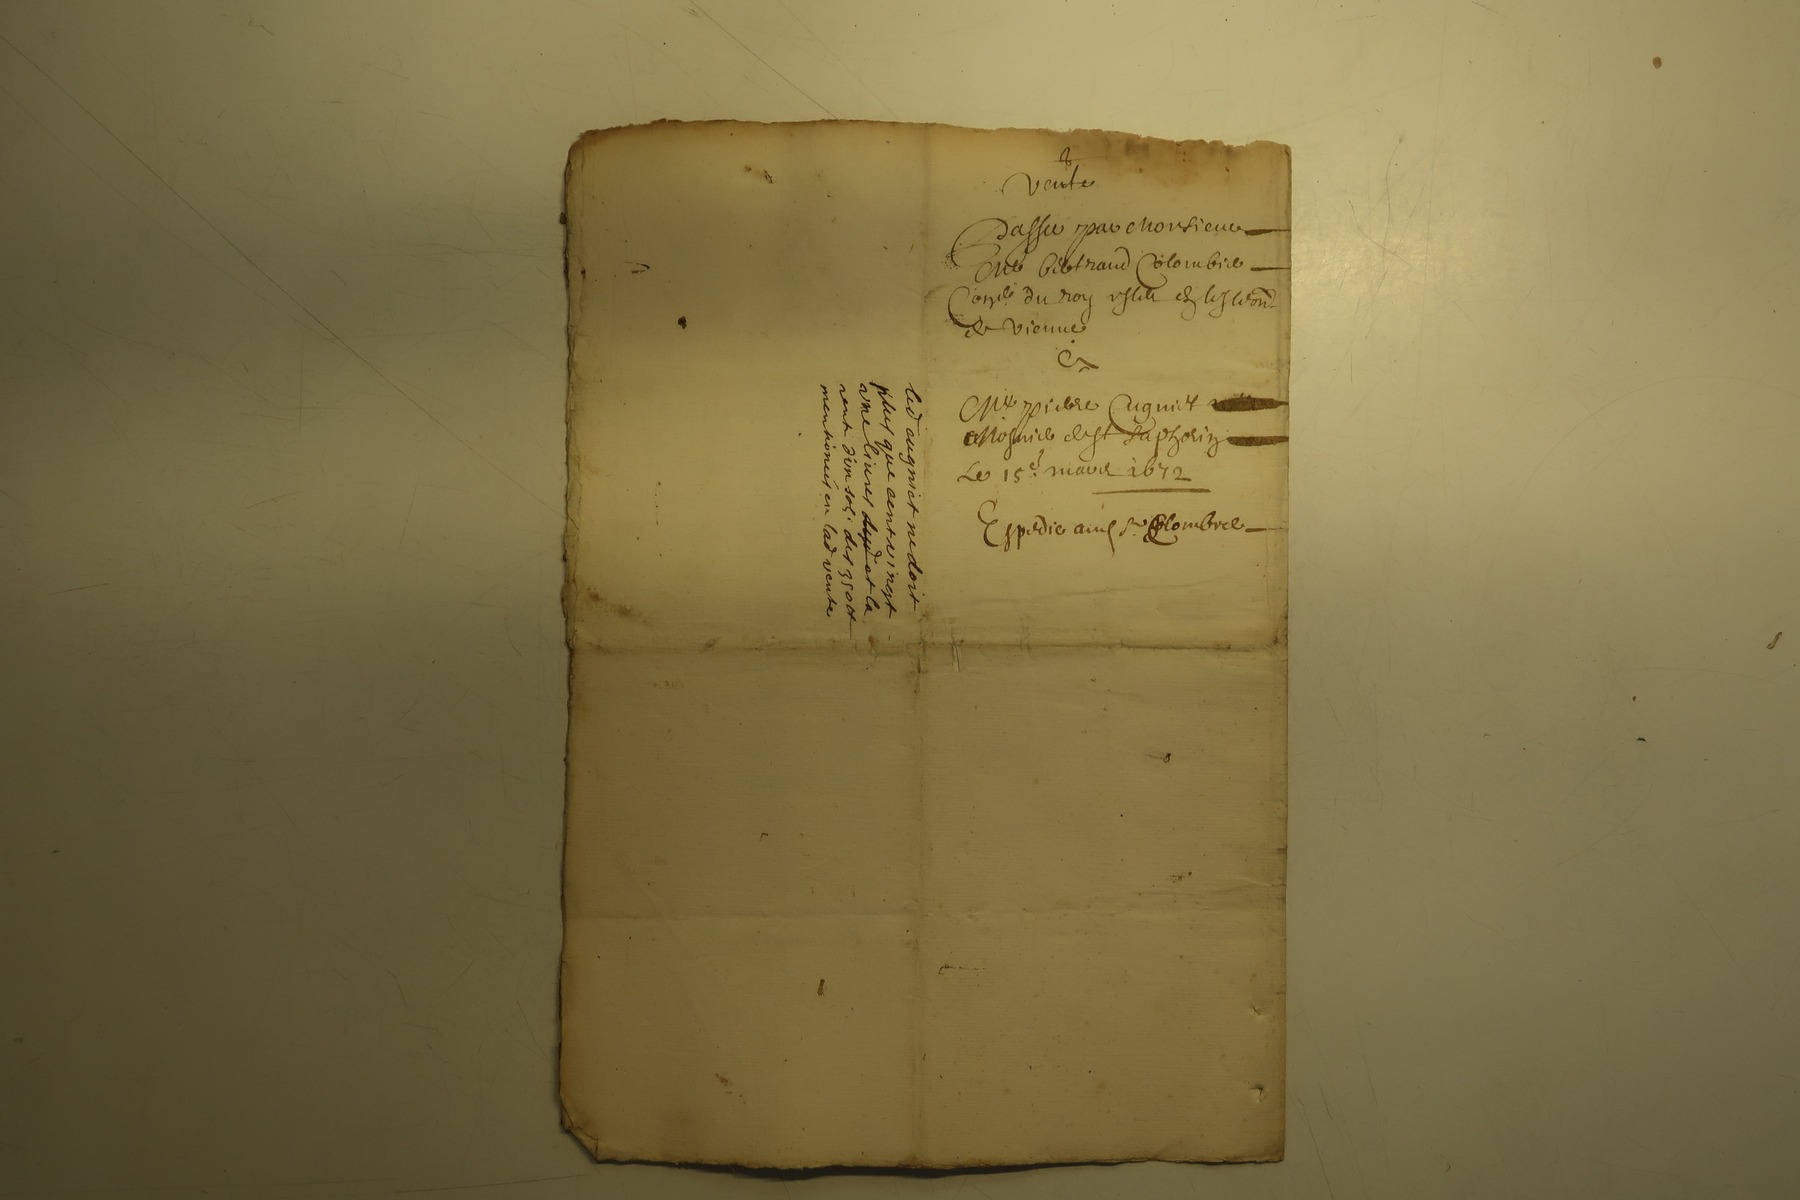 Vente
Passée par Monsieur
Me bertrand Colombier
Conser du roy esleu en leslection
de Vienne
A
Me pierre Cugniet
de st saphorin
Le 15e mars 1672
Expedié aud sr Colombier
led cugniet ne doit
plus que cent vingt
une livres et la
rente d'un sol des 3500 tt
mentionés en lad vente